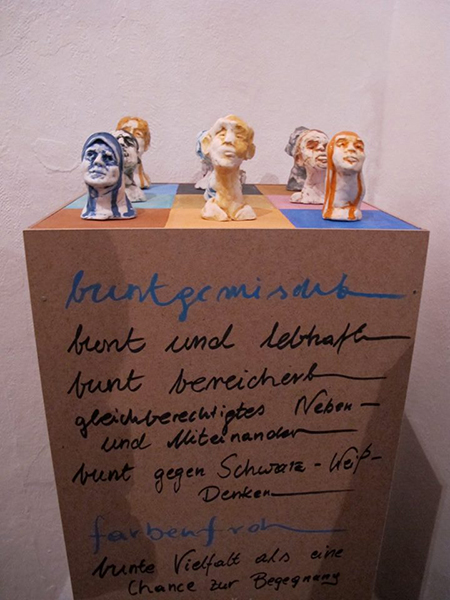 buntgemischt
bunt und lebhaft
bunt bereichert
gleichberechtigtes Neben-
und Miteinander
bunt gegen Schwarz-Weiß-
Denken
farbenfroh
bunte Vielfalt als eine
Chance zur Begegnung